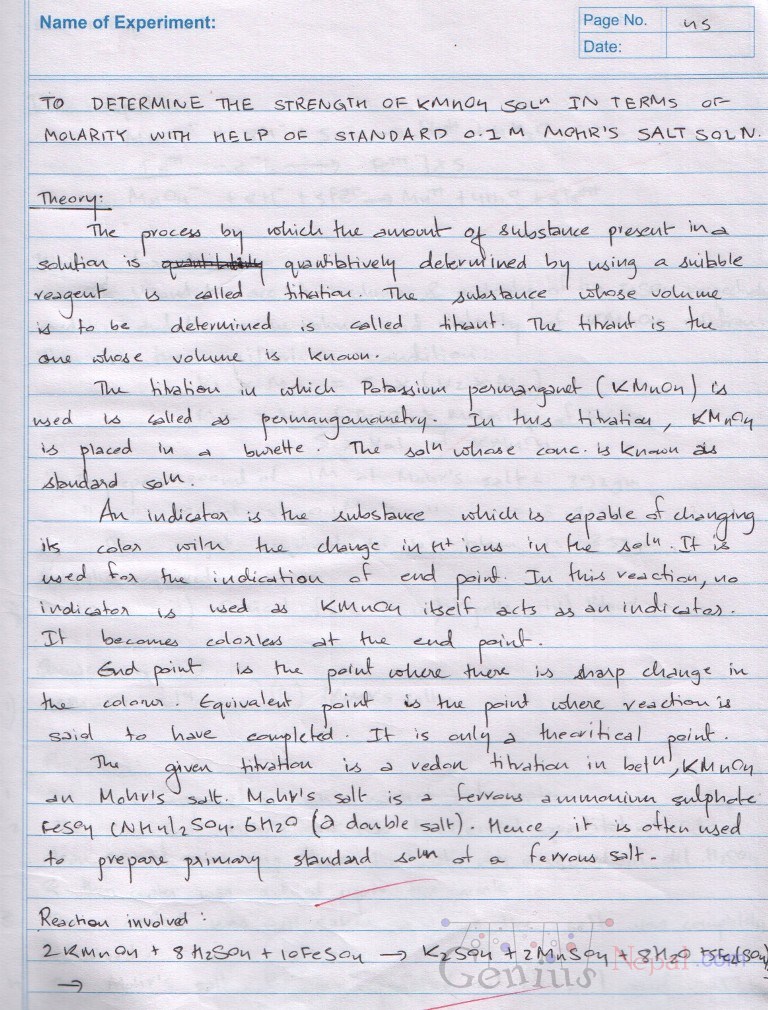 Name of Experiment:
Page No. 45
Date:
TO DETERMINE THE STRENGTH OF KMnO4 SOLn IN TERMS OF
MOLARITY WITH HELP OF STANDARD 0.1M MOHR'S SALT SOLN.
Theory:
The process by which the amount of substance present in a
solution is quantitatively determined by using a suitable
reagent is called titration. The substance whose volume
is to be determined is called titrant. The titrant is the
one whose volume is known.
The titration in which Potassium permanganet (KMnO4) is
used is called as permanganometry. In this titration, KMnO4
is placed in a burette. The soln whose conc. is known as
standard soln.
An indicator is the substance which is capable of changing
its color with the change in H+ ions in the soln. It is
used for the indication of end point. In this reaction, no
indicator is used as KMnO4 itself acts as an indicator.
It becomes colorless at the end point.
End point is the point where there is sharp change in
the colour. Equivalent point is the point where reaction is
said to have completed. It is only a theoritical point.
The given titration is a redox titration in betn, KMnO4
an Mohr's salt. Mohr's salt is a ferrous ammonium sulphate
FeSO4 (NH4)2SO4. 6H2O (a double salt). Hence, it is often used
to prepare primary standard soln of a ferrous salt.
Reaction involved:
2KMnO4 + 8H2SO4 + 10FeSO4 → K2SO4 + 2MnSO4 + 8H2O +5Fe2(SO4)
→
Genius Nepal.com